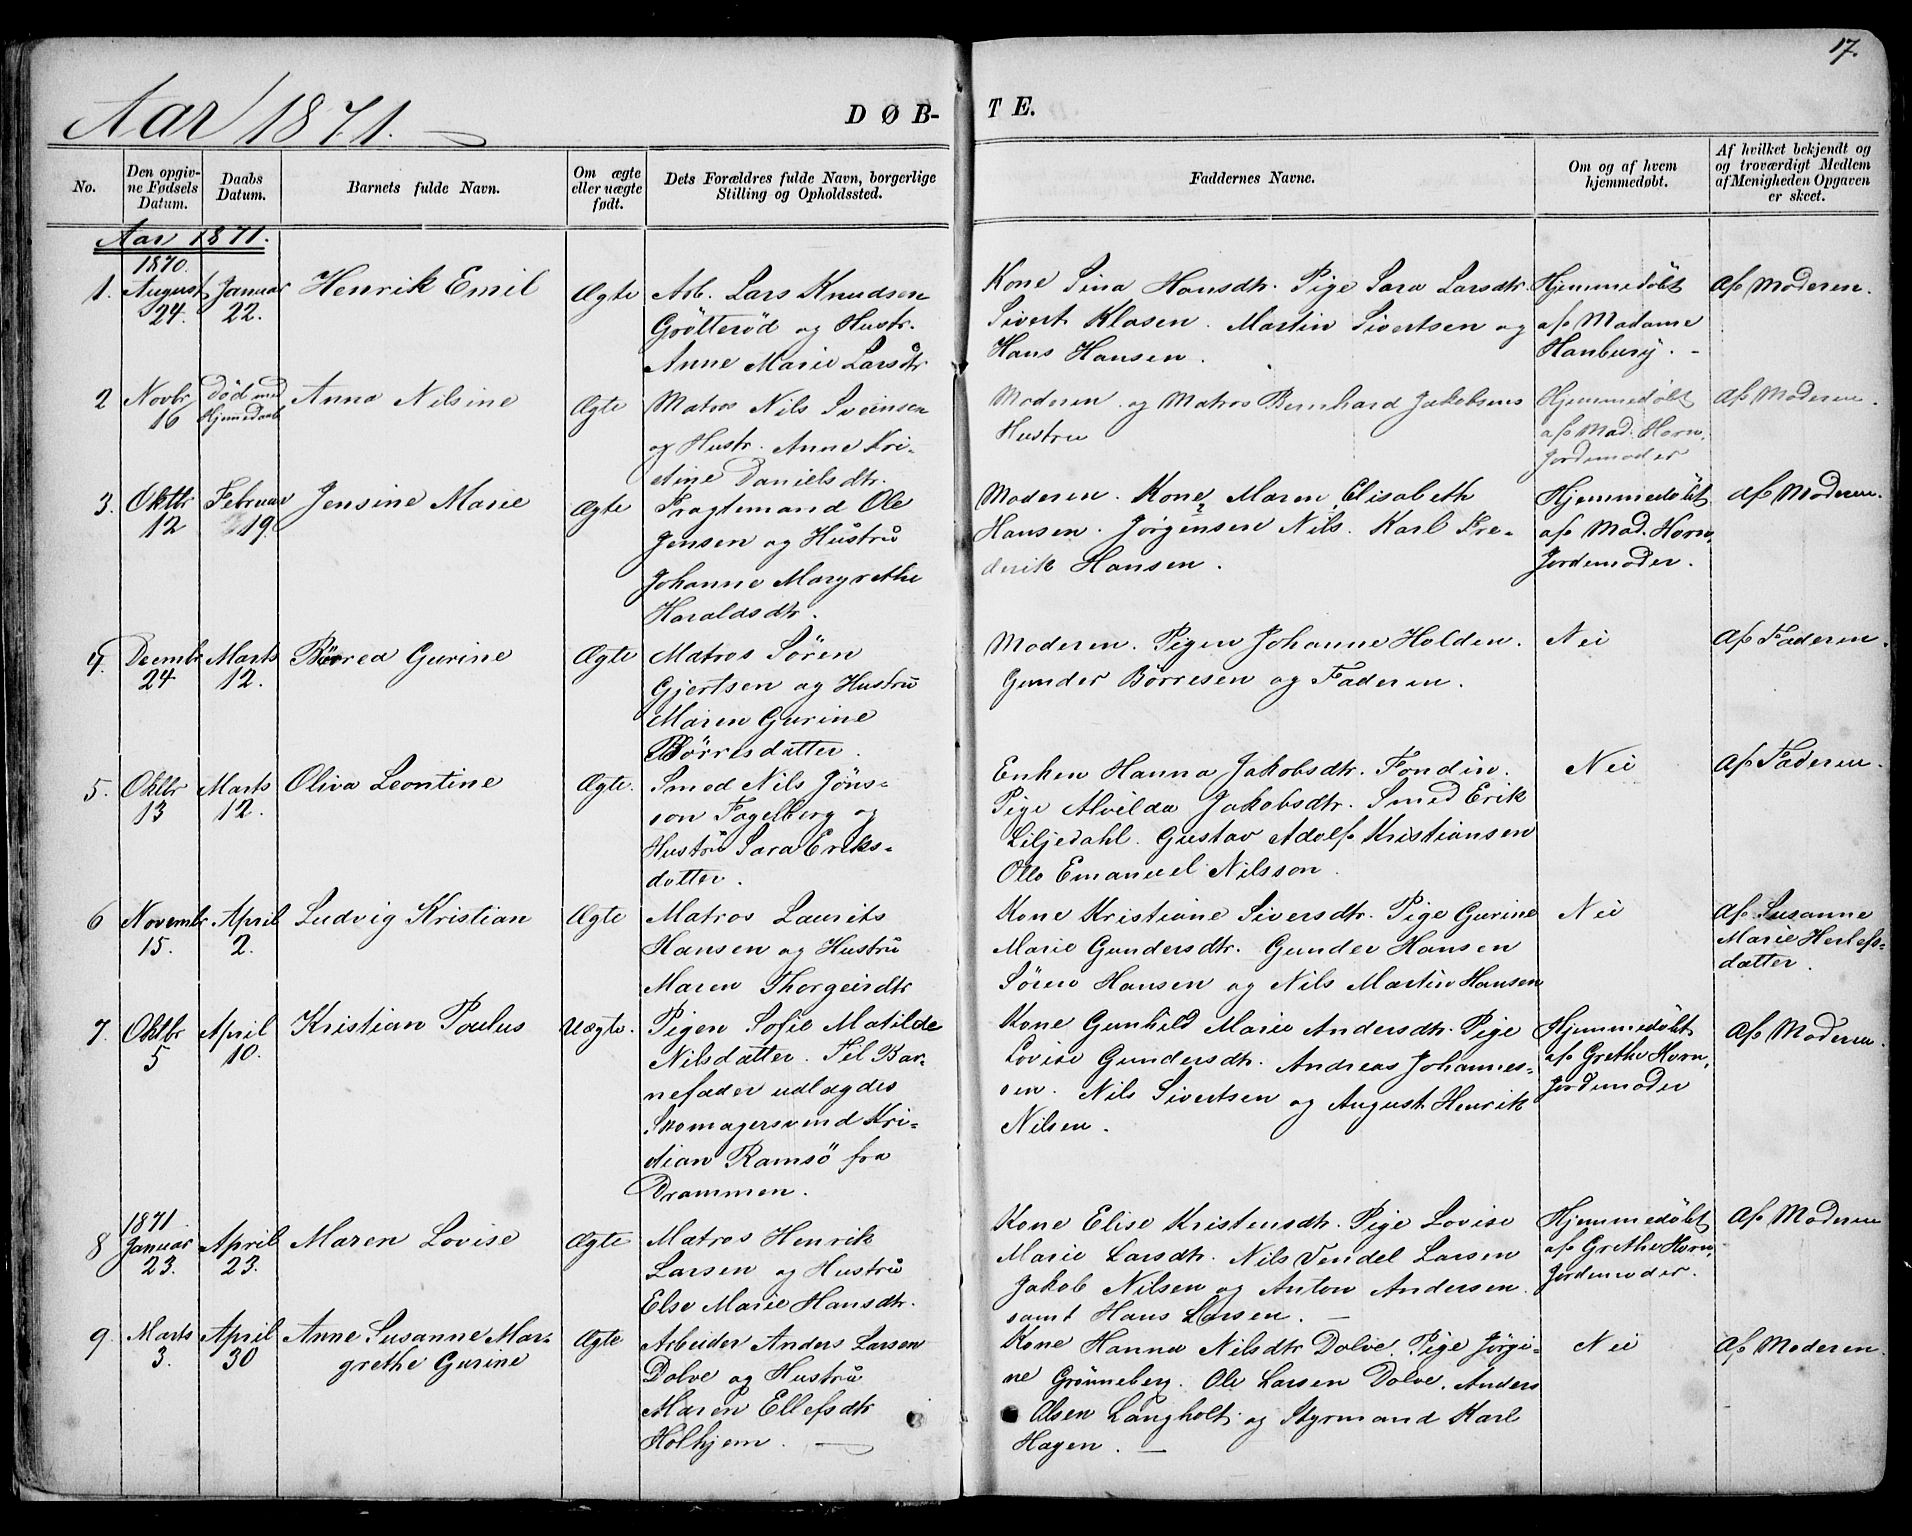 17.
Aar 1871.
DØB-TE.
No.
Den opgiv-
ne Fødsels
Datum.
Daabs
Datum.
Barnets fulde Navn.
Om ægte
eller uægte
født.
Dets Forældres fulde Navn, borgerlige
Stilling og Opholdssted.
Faddernes Navne.
Om og af hvem
hjemmedøbt.
Af hvilket bekjendt og
og troværdigt Medlem
af Menigheden Opgaven
er skeet.
Aar 1871.
1870.
1.
August
24.
Januar
22.
Henrik Emil
Ægte
Arb. Lars Knudsen
Grötteröd og Hustr.
Anne Marie Larsdtr
Kone Sina Hansdtr. Pige Sara Larsdtr.
Sivert Klasen. Martin Sivertsen og
Hans Hansen.
Hjemmedøbt
af Madame
Hanburg. -
af Moderen.
2
Novbr
16
Död med
Hjemedaab
Anna Nilsine
Ægte
Matros Nils Svensen
og Hustr. Anne Kri-
stine Danielsdtr.
Moderen og Matros Bernhard Jakobsens
Hustru
Hjemmedøbt
af Mad. Horn,
Jordemoder
af Moderen.
3.
Oktbr
12
Februar
19.
Jensine Marie
Ægte
Fragtemand Ole
Jensen og Hustru
Johanne Margrethe
Haraldsdtr.
Moderen. Kone Maren Elisabeth
Hansen. Jørgensen Nils. Karl Fre-
derik Hansen.
Hjemmedøbt
af Mad. Horn,
Jordemoder.
af Moderen.
4.
Decembr
24
Marts
12.
Börrea Gurine
Ægte
Matros Sören
Gjertsen og Hustru
Maren Gurine
Börresdatter.
Moderen. Pigen Johanne Holden.
Gunder Börresen og Faderen.
Nei
af Faderen.
5.
Oktbr
13
Marts
12.
Oliva Leontine
Ægte.
Smed Nils Jöns-
son Fagelberg og
Hustru Sara Eriks-
datter.
Enken Hanna Jakobsdtr. Fondin.
Pige Alvilda Jakobsdtr. Smed Erik
Liljedahl. Gustav Adolf Kristiansen
Otto Emanuel Nilsson.
Nei
af Faderen.
6
Novembr
15.
April
2.
Ludvig Kristian
Ægte
Matros Laurits
Hansen og Hustru
Maren Thorgeirsdtr
Kone Kristiane Siversdtr. Pige Gurine
Marie Gundersdtr. Gunder Hansen
Sören Hansen og Nils Martin Hansen
Nei
af Susanne
Marie Herlefs-
datter.
7.
Oktbr
5
April
10.
Kristian Paulus
Uægte.
Pigen Sofie Matilde
Nilsdatter. Til Bar-
nefader udlægdes
Skomagersvend Kri-
stian Ramsö fra
Drammen.
Kone Gunhild Marie Andersdtr. Pige
Lovise Gundersdtr. Andreas Johannes-
sen. Nils Sivertsen og August Henrik
Nilsen.
Hjemmedøbt
af Grethe Horn,
Jordemoder
af Moderen.
1871.
8
Januar
23.
April
23.
Maren Lovise
Ægte
Matros Henrik
Larsen og Hustru
Else Marie Hansdtr.
Kone Elise Kristensdtr. Pige Lovise
Marie Larsdtr. Nils Vendel Larsen
Jakob Nilsen og Anton Andersen.
samt Hans Larsen. -
Hjemmedøbt
af Grethe Horn,
Jordemoder.
af Moderen
9.
Marts
3.
April
30
Anne Susanne Mar-
grethe Gurine
Ægte
Arbeider Anders Larsen
Dolve og Hustru
Maren Ellefsdtr
Holhjem. -
Kone Hanna Nilsdtr Dolve. Pige Jørgi-
ne Grønneberg. Ole Larsen Dolve. Anders
Olsen Langholt og Styrmand Karl
Hagen. -
Nei
af Moderen.